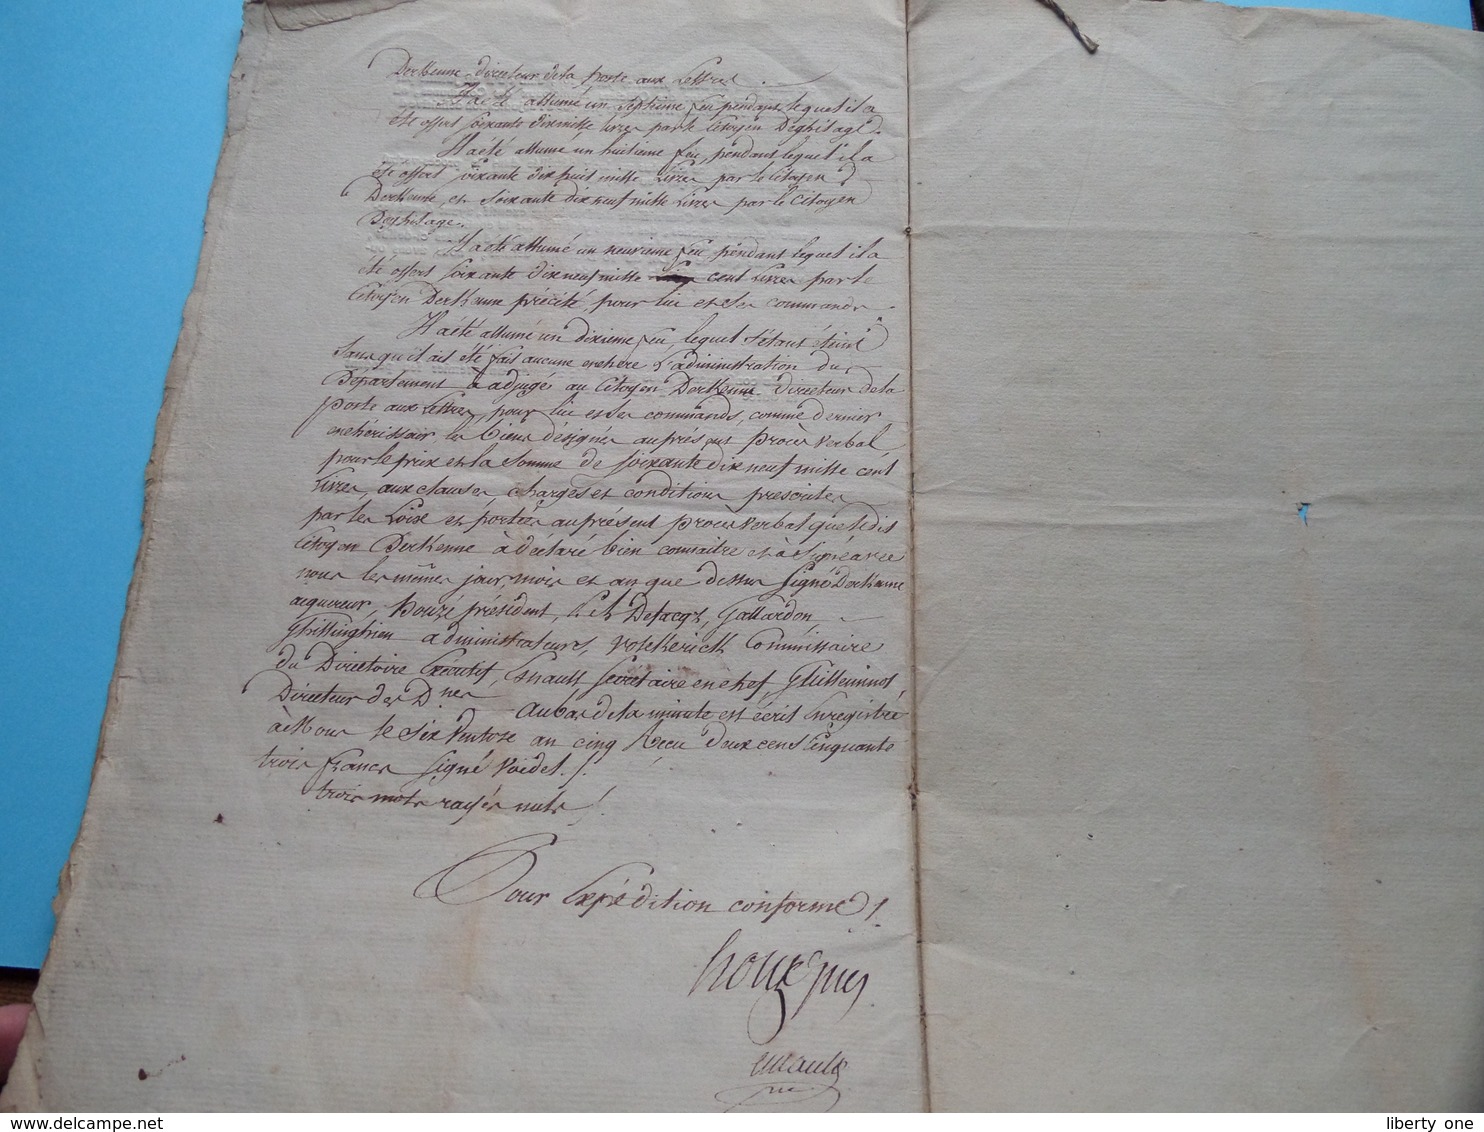 Derkenne directeur de la poste aux Lettres.
Il a été allumé un septieme feu pendant lequel il a
été offert soixante dix mille livres par le Citoyen Deghilage.
Il a été allumé un huitieme feu, pendant lequel il a
été offert soixante dix huit mille Livres par le Citoyen
Derkenne, et soixante dix neuf mille Livres par le Citoyen
Deghilage.
Il a été allumé un neuvieme feu pendant lequel il a
été offert soixante dix neuf mille cent Livres par le
Citoyen Derkenne précité, pour lui et ses commands.
Il a été allumé un dixieme feu, lequel s'étant éteint
sans qu'il ait été fait aucune enchere L'administration du
Département à adjugé au Citoyen Derkenne directeur de la
poste aux Lettres, pour lui et ses commands, comme dernier
enchérisseur les biens désignés au présent procès verbal
pour le prix et la Somme de soixante dix neuf mille cent
Livres, aux clauses charges et conditions prescrites
par les Loix et portées au présent procès verbal que ledit
Citoyen Derkenne à déclaré bien connaitre et à signé avec
nous les mêmes jour, mois et an que dessus Signé Derkenne
acquereur, houzé président, Defacqz, Gallardon,
Ghislinghien administrateurs, rosekerick Commissaire
du Directoire Exécutif, Enault Secrétaire en chef, Ghilleninot,
Directeur des D.nes au bas de la minute est écrit Enregistré
à Mons le six Ventose an cinq Reçu deux cens Cinquante
trois francs signé Voidet ./.
trois mots rayés nuls ./.
Pour Expédition conforme ./.
houzé
enault
liberty one